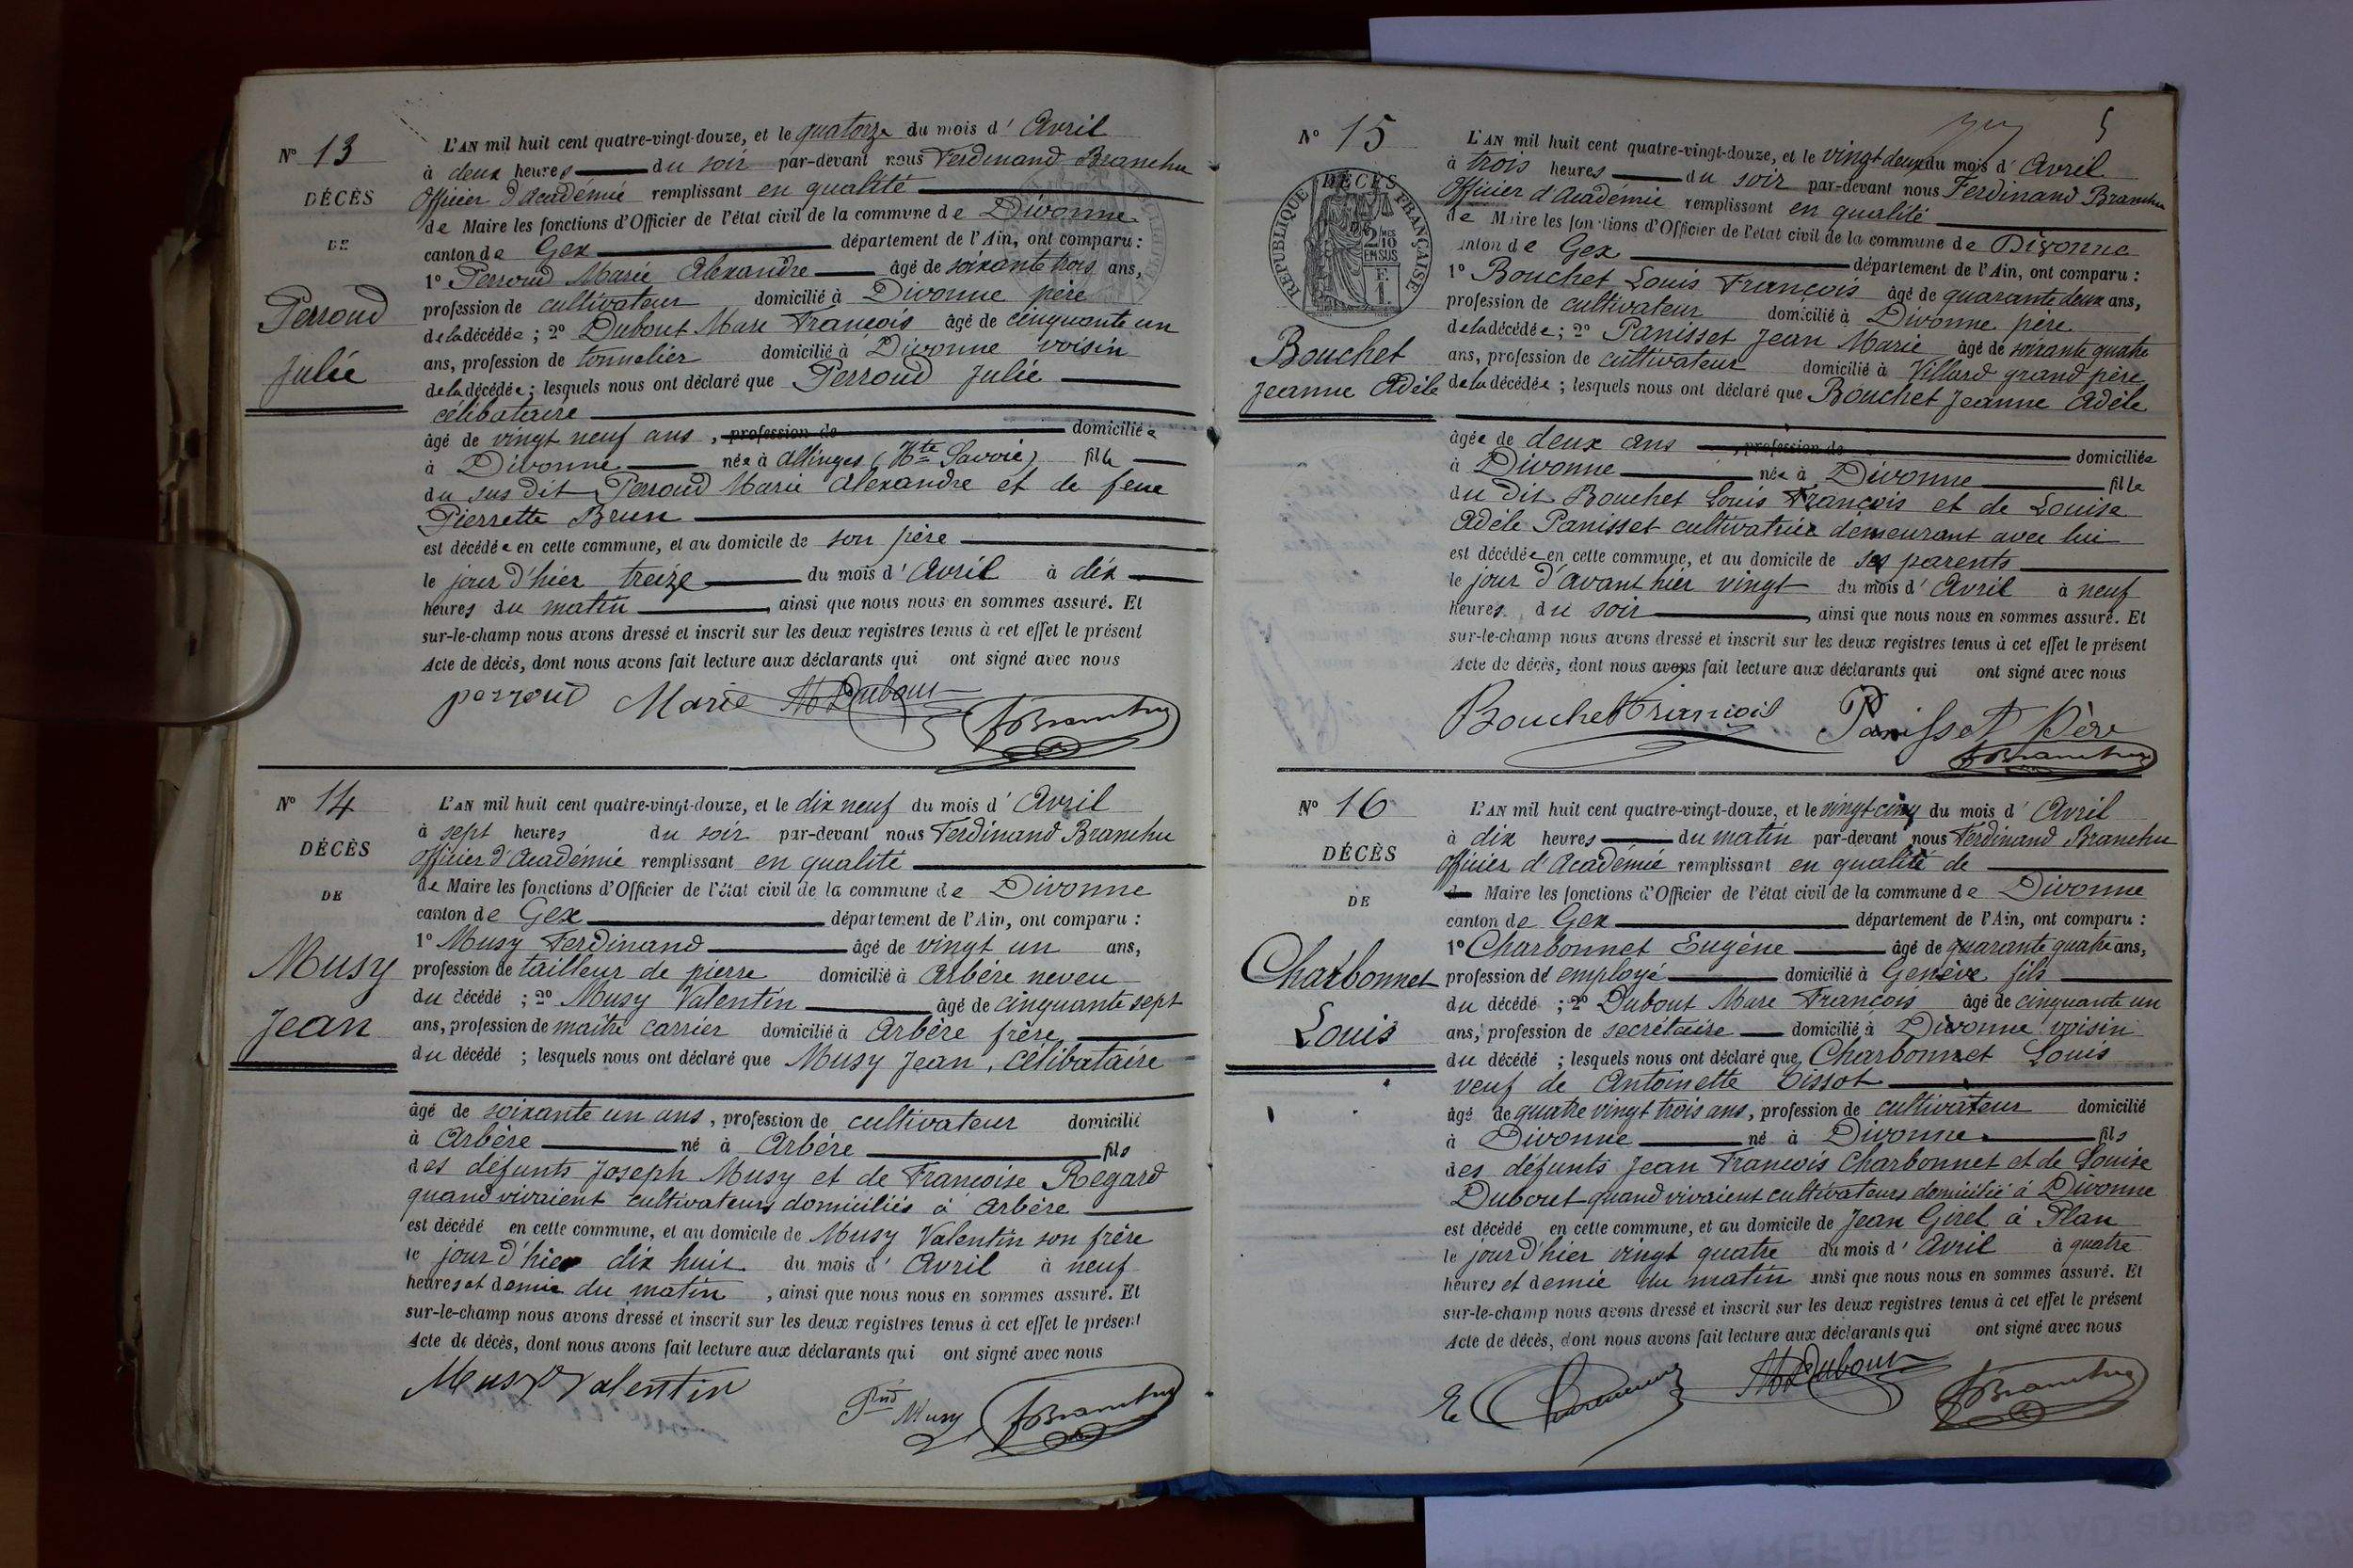 N° 13
DÉCÈS
DE
Perroud
Julie
L'AN mil huit cent quatre-vingt-douze, et le quatorze du mois d' Avril
à deux heures du soir par-devant nous Ferdinand Branchu
Officier d'académie remplissant en qualité
de Maire les fonctions d'Officier de l'état civil de la commune de Divonne
canton de Gex département de l'Ain, ont comparu :
1° Perroud Marie Alexandre âgé de soixante trois ans,
profession de cultivateur domicilié à Divonne père
de la décédée ; 2° Dubout Marc François âgé de cinquante un
ans, profession de tonnelier domicilié à Divonne voisin
de la décédée ; lesquels nous ont déclaré que Perroud Julie
célibataire
âgé de vingt neuf ans , profession de domiciliée
à Divonne née à Allinges (Hte Savoie) fille
du sus dit Perroud Marie Alexandre et de feue
Pierrette Brun
est décédée en cette commune, et au domicile de son père
le jour d'hier treize du mois d' Avril à dix
heures du matin , ainsi que nous nous en sommes assuré. Et
sur-le-champ nous avons dressé et inscrit sur les deux registres tenus à cet effet le présent
Acte de décès, dont nous avons fait lecture aux déclarants qui ont signé avec nous
perroud Marie M Dubout
FBranchu
N° 14
DÉCÈS
DE
Musy
Jean
L'AN mil huit cent quatre-vingt-douze, et le dix neuf du mois d' Avril
à sept heures du soir par-devant nous Ferdinand Branchu
Officier d'Académie remplissant en qualité
de Maire les fonctions d'Officier de l'état civil de la commune de Divonne
canton de Gex département de l'Ain, ont comparu :
1° Musy Ferdinand âgé de vingt un ans,
profession de tailleur de pierre domicilié à Arbère neveu
du décédé ; 2° Musy Valentin âgé de cinquante sept
ans, profession de maître carrier domicilié à Arbère frère
du décédé ; lesquels nous ont déclaré que Musy Jean, célibataire
âgé de soixante un ans , profession de cultivateur domicilié
à Arbère né à Arbère fils
des défunts Joseph Musy et de Françoise Regard
quand vivaient cultivateurs domiciliés à Arbère
est décédé en cette commune, et au domicile de Musy Valentin son frère
le jour d'hier dix huit du mois d' Avril à neuf
heures et demie du matin , ainsi que nous nous en sommes assuré. Et
sur-le-champ nous avons dressé et inscrit sur les deux registres tenus à cet effet le présent
Acte de décès, dont nous avons fait lecture aux déclarants qui ont signé avec nous
Musy Valentin
Musy FBranchu
5
N° 15
RÉPUBLIQUE FRANÇAISE
DÉCÈS
2/10MES
EN SUS
F.
1.
Bouchet
Jeanne Adèle
L'AN mil huit cent quatre-vingt-douze, et le vingt deux du mois d' Avril
à trois heures du soir par-devant nous Ferdinand Branchu
Officier d'Académie remplissant en qualité
de Maire les fonctions d'Officier de l'état civil de la commune de Divonne
canton de Gex département de l'Ain, ont comparu :
1° Bouchet Louis François âgé de quarante deux ans,
profession de cultivateur domicilié à Divonne père
de la décédée ; 2° Panisset Jean Marie âgé de soixante quatre
ans, profession de cultivateur domicilié à Villard grand père
de la décédée ; lesquels nous ont déclaré que Bouchet Jeanne Adèle
âgée de deux ans , profession de domiciliée
à Divonne née à Divonne fille
du dit Bouchet Louis François et de Louise
Adèle Panisset cultivatrice demeurant avec lui
est décédée en cette commune, et au domicile de ses parents
le jour d'avant hier vingt du mois d' Avril à neuf
heures du soir , ainsi que nous nous en sommes assuré. Et
sur-le-champ nous avons dressé et inscrit sur les deux registres tenus à cet effet le présent
Acte de décès, dont nous avons fait lecture aux déclarants qui ont signé avec nous
Bouchet François Panisset Père
FBranchu
N° 16
DÉCÈS
DE
Charbonnet
Louis
L'AN mil huit cent quatre-vingt-douze, et le vingt cinq du mois d' Avril
à dix heures du matin par-devant nous Ferdinand Branchu
Officier d'Académie remplissant en qualité de
de Maire les fonctions d'Officier de l'état civil de la commune de Divonne
canton de Gex département de l'Ain, ont comparu :
1° Charbonnet Eugène âgé de quarante quatre ans,
profession de employé domicilié à Genève fils
du décédé ; 2° Dubout Marc François âgé de cinquante un
ans, profession de secrétaire domicilié à Divonne voisin
du décédé ; lesquels nous ont déclaré que Charbonnet Louis
veuf de Antoinette Dissot
âgé de quatre vingt trois ans , profession de cultivateur domicilié
à Divonne né à Divonne fils
des défunts Jean François Charbonnet et de Louise
Dubout quand vivaient cultivateurs domicilié à Divonne
est décédé en cette commune, et au domicile de Jean Girel à Plan
le jour d'hier vingt quatre du mois d' Avril à quatre
heures et demie du matin ainsi que nous nous en sommes assuré. Et
sur-le-champ nous avons dressé et inscrit sur les deux registres tenus à cet effet le présent
Acte de décès, dont nous avons fait lecture aux déclarants qui ont signé avec nous
M Dubout FBranchu